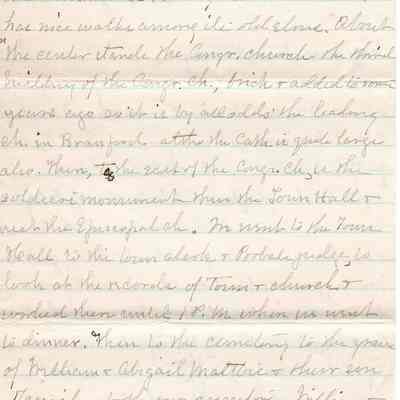 has nice walks among its old elms. About
the center stands the Congr. church the third
building of the Congr. ch., brick & added to some
years ago so it is by all odds the leading
ch. in Branford altho the Cath is quite large
also. Then, to the east of the Congr. ch, is the
soldiers monument then the Town Hall &
next the Episcopal ch. We went to the Town
Hall to the town clerk & Probate judge, to
look at the records of Town & church &
worked there until 1 P.M. when we went
to dinner. Then to the cemetery to the graves
of William & Abigail Maltbie & their son
Daniel both our ancestors